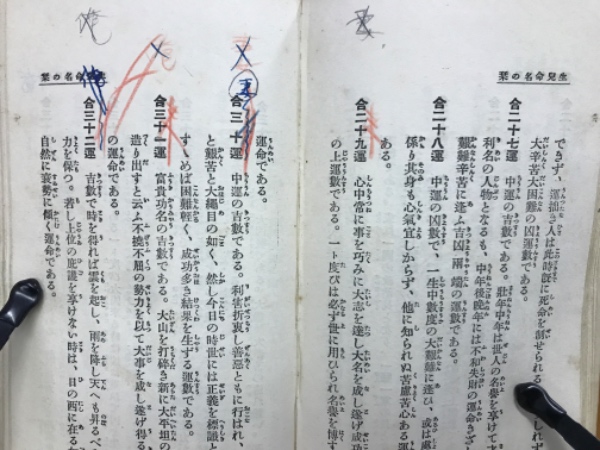 生兒命名の栞
できず、運拙なき人は此時旣に死命を制せられる
大辛苦大困難の凶運數である。
合二十七運 中運の吉數である。壯年中年は世人の名譽を享けて
利名の人物となるも、中年後晩年には不和失財の運命
艱難辛苦に逢ふ吉凶兩端の運數である。
合二十八運 中運の凶數で、一生中數度の大艱難に逢ひ、或は處
係り其身も心氣宜しからず、他に知られぬ苦慮苦心ある運
ある。
合二十九運 心中常に事を巧みに大志を達し大名を成し遂げ成功
の上運數である。一ト度びは必ず世に用ひられ名譽を博す
命名の栞
運命である。
合三十運 中運の吉數である。利害折衷し善惡ともに行はれ、
と艱苦と大繩目の如く、然し今日の時世には正義を標識と
すゝめば困難輕く、成功多き結果を生ずる運數である。
合三十一運 富貴功名の吉數である。大山を打碎き新に大平坦の
造り出すと云ふ不撓不屈の勢力を以て大事を成し遂げ得る
の運命である。
合三十二運 吉數で時を得れば雲を起し、雨を降し天へも昇るべ
力を保つ。若し上位の庇護を享けない時は、日の西に在る
自然に衰勢に傾く運命である。